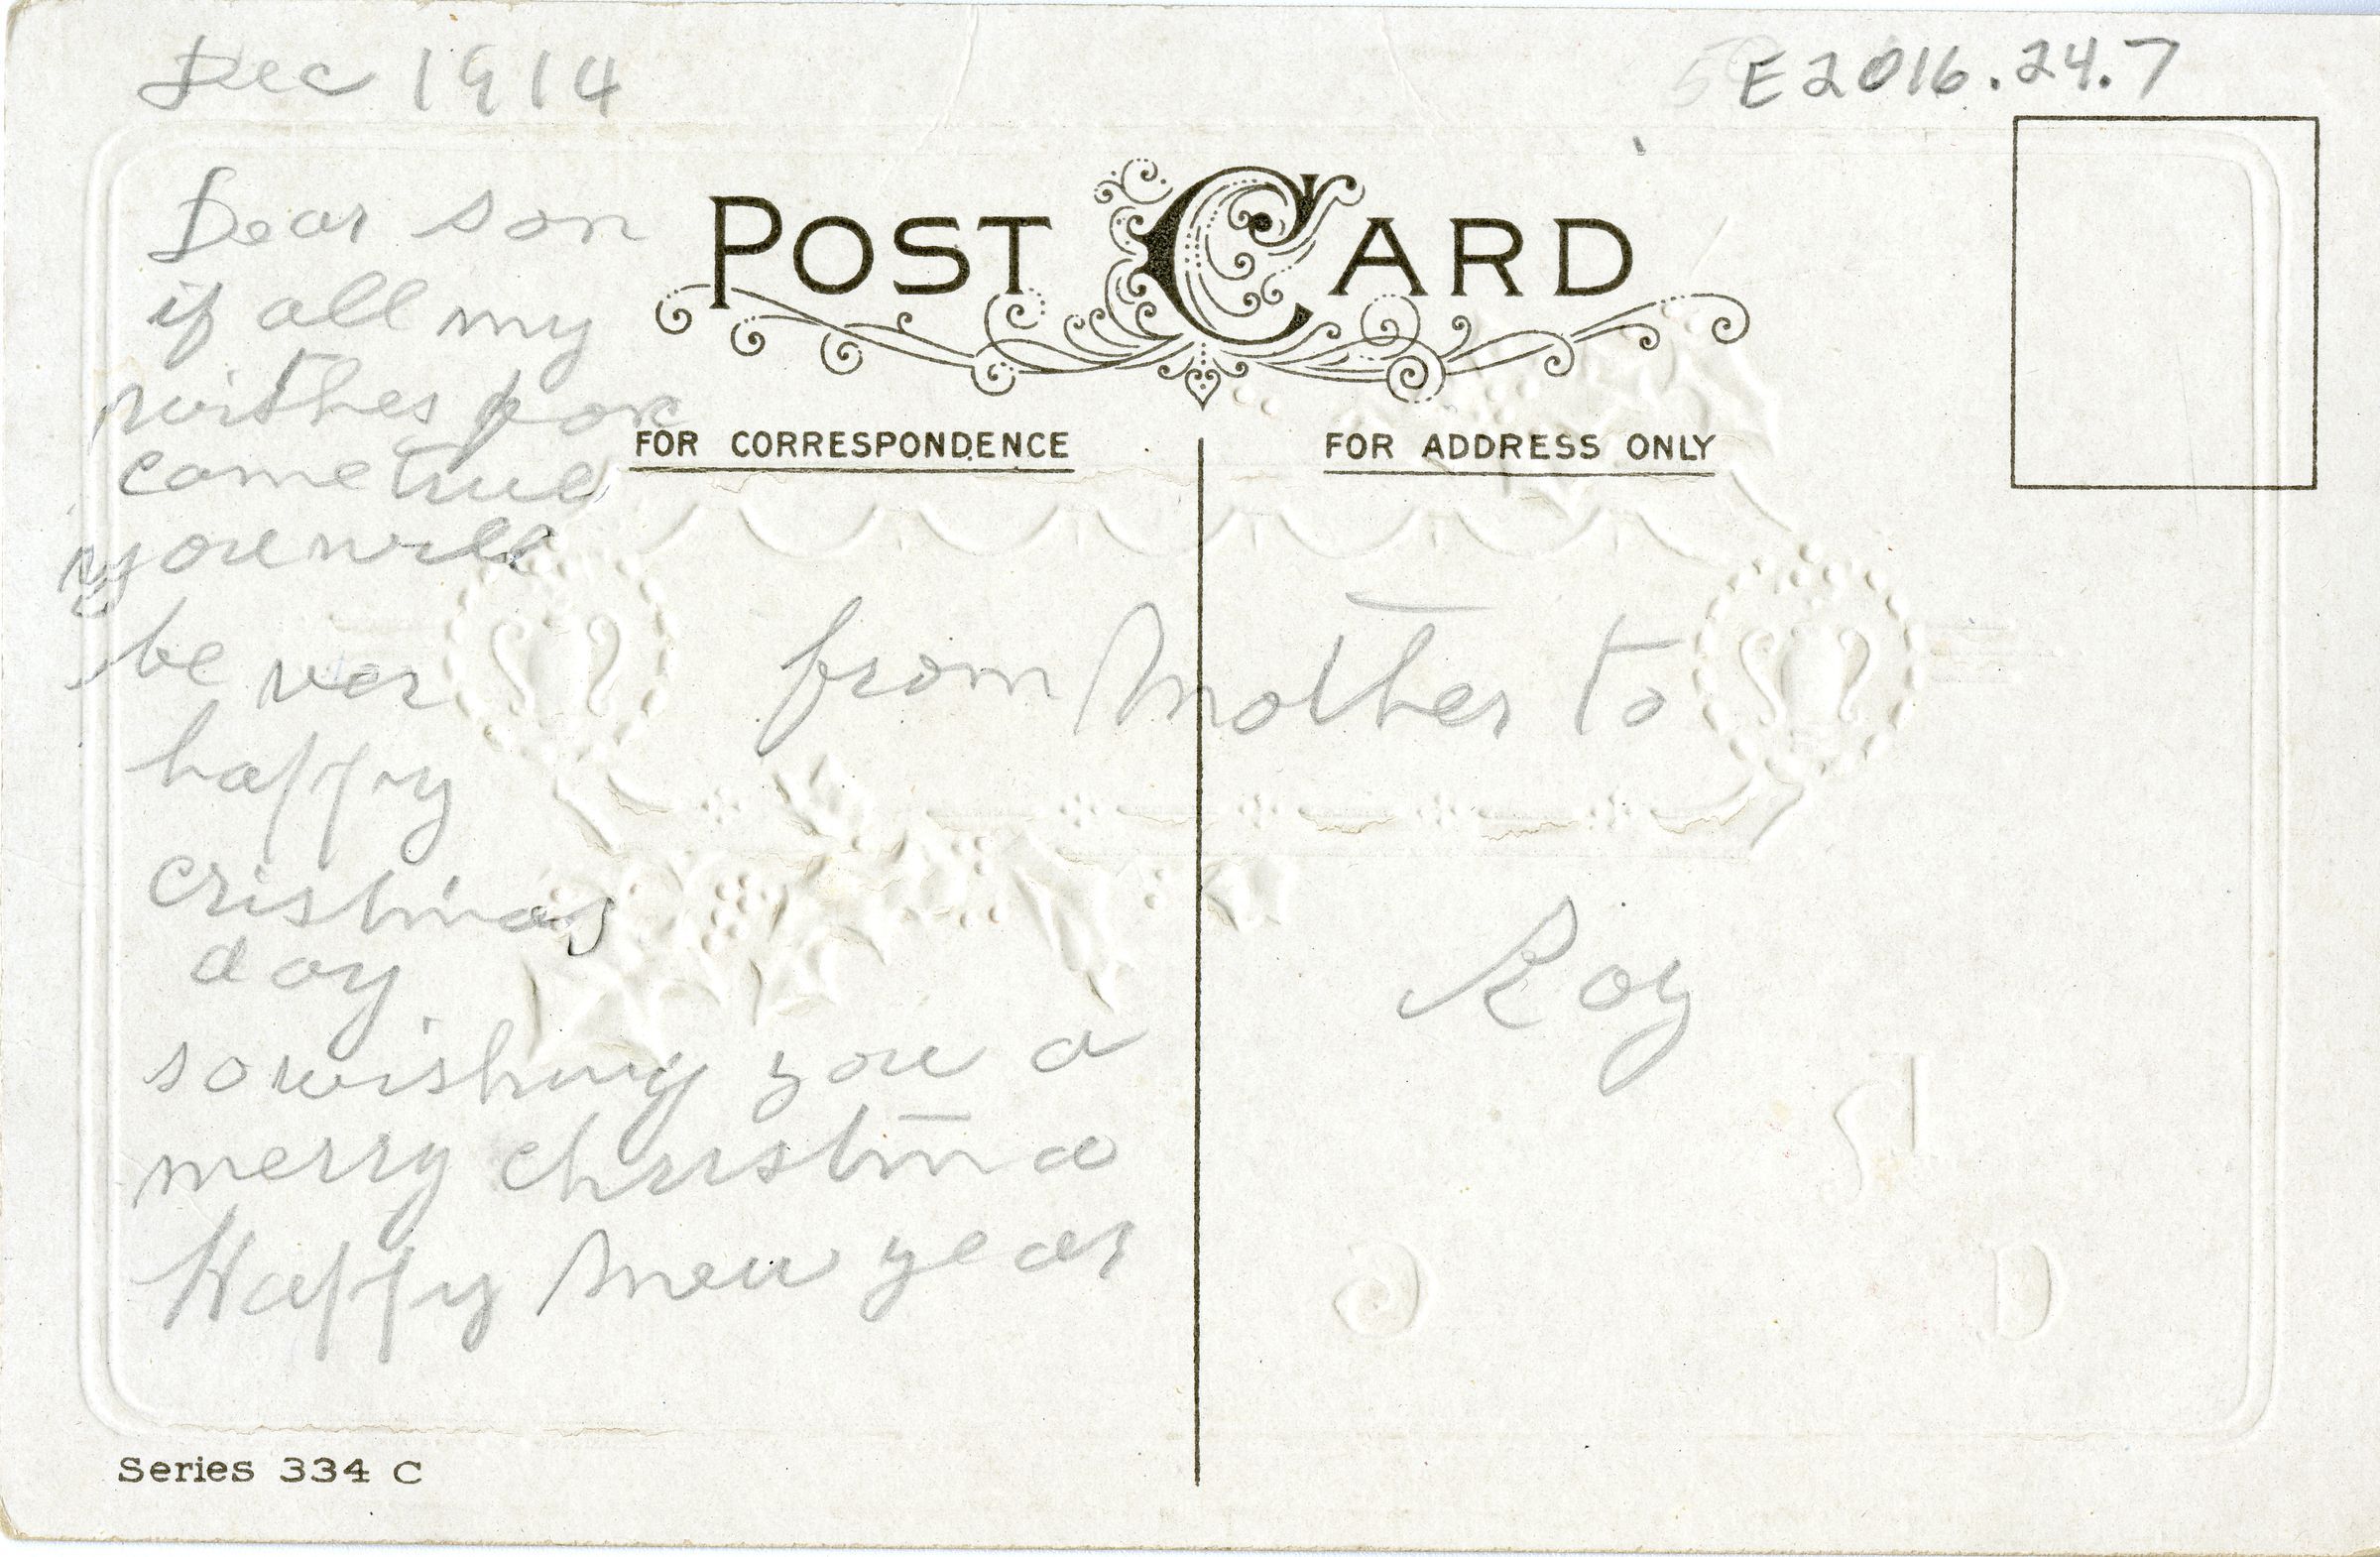 Dec 1914
E2016.24.7
POST CARD
FOR CORRESPONDENCE
FOR ADDRESS ONLY
Dear son
if all my
withes for
come true
you will
be ver
happy
cristmas
day
so wishing you a
merry christma
Happy new year
from Mother to
Roy
Series 334 C